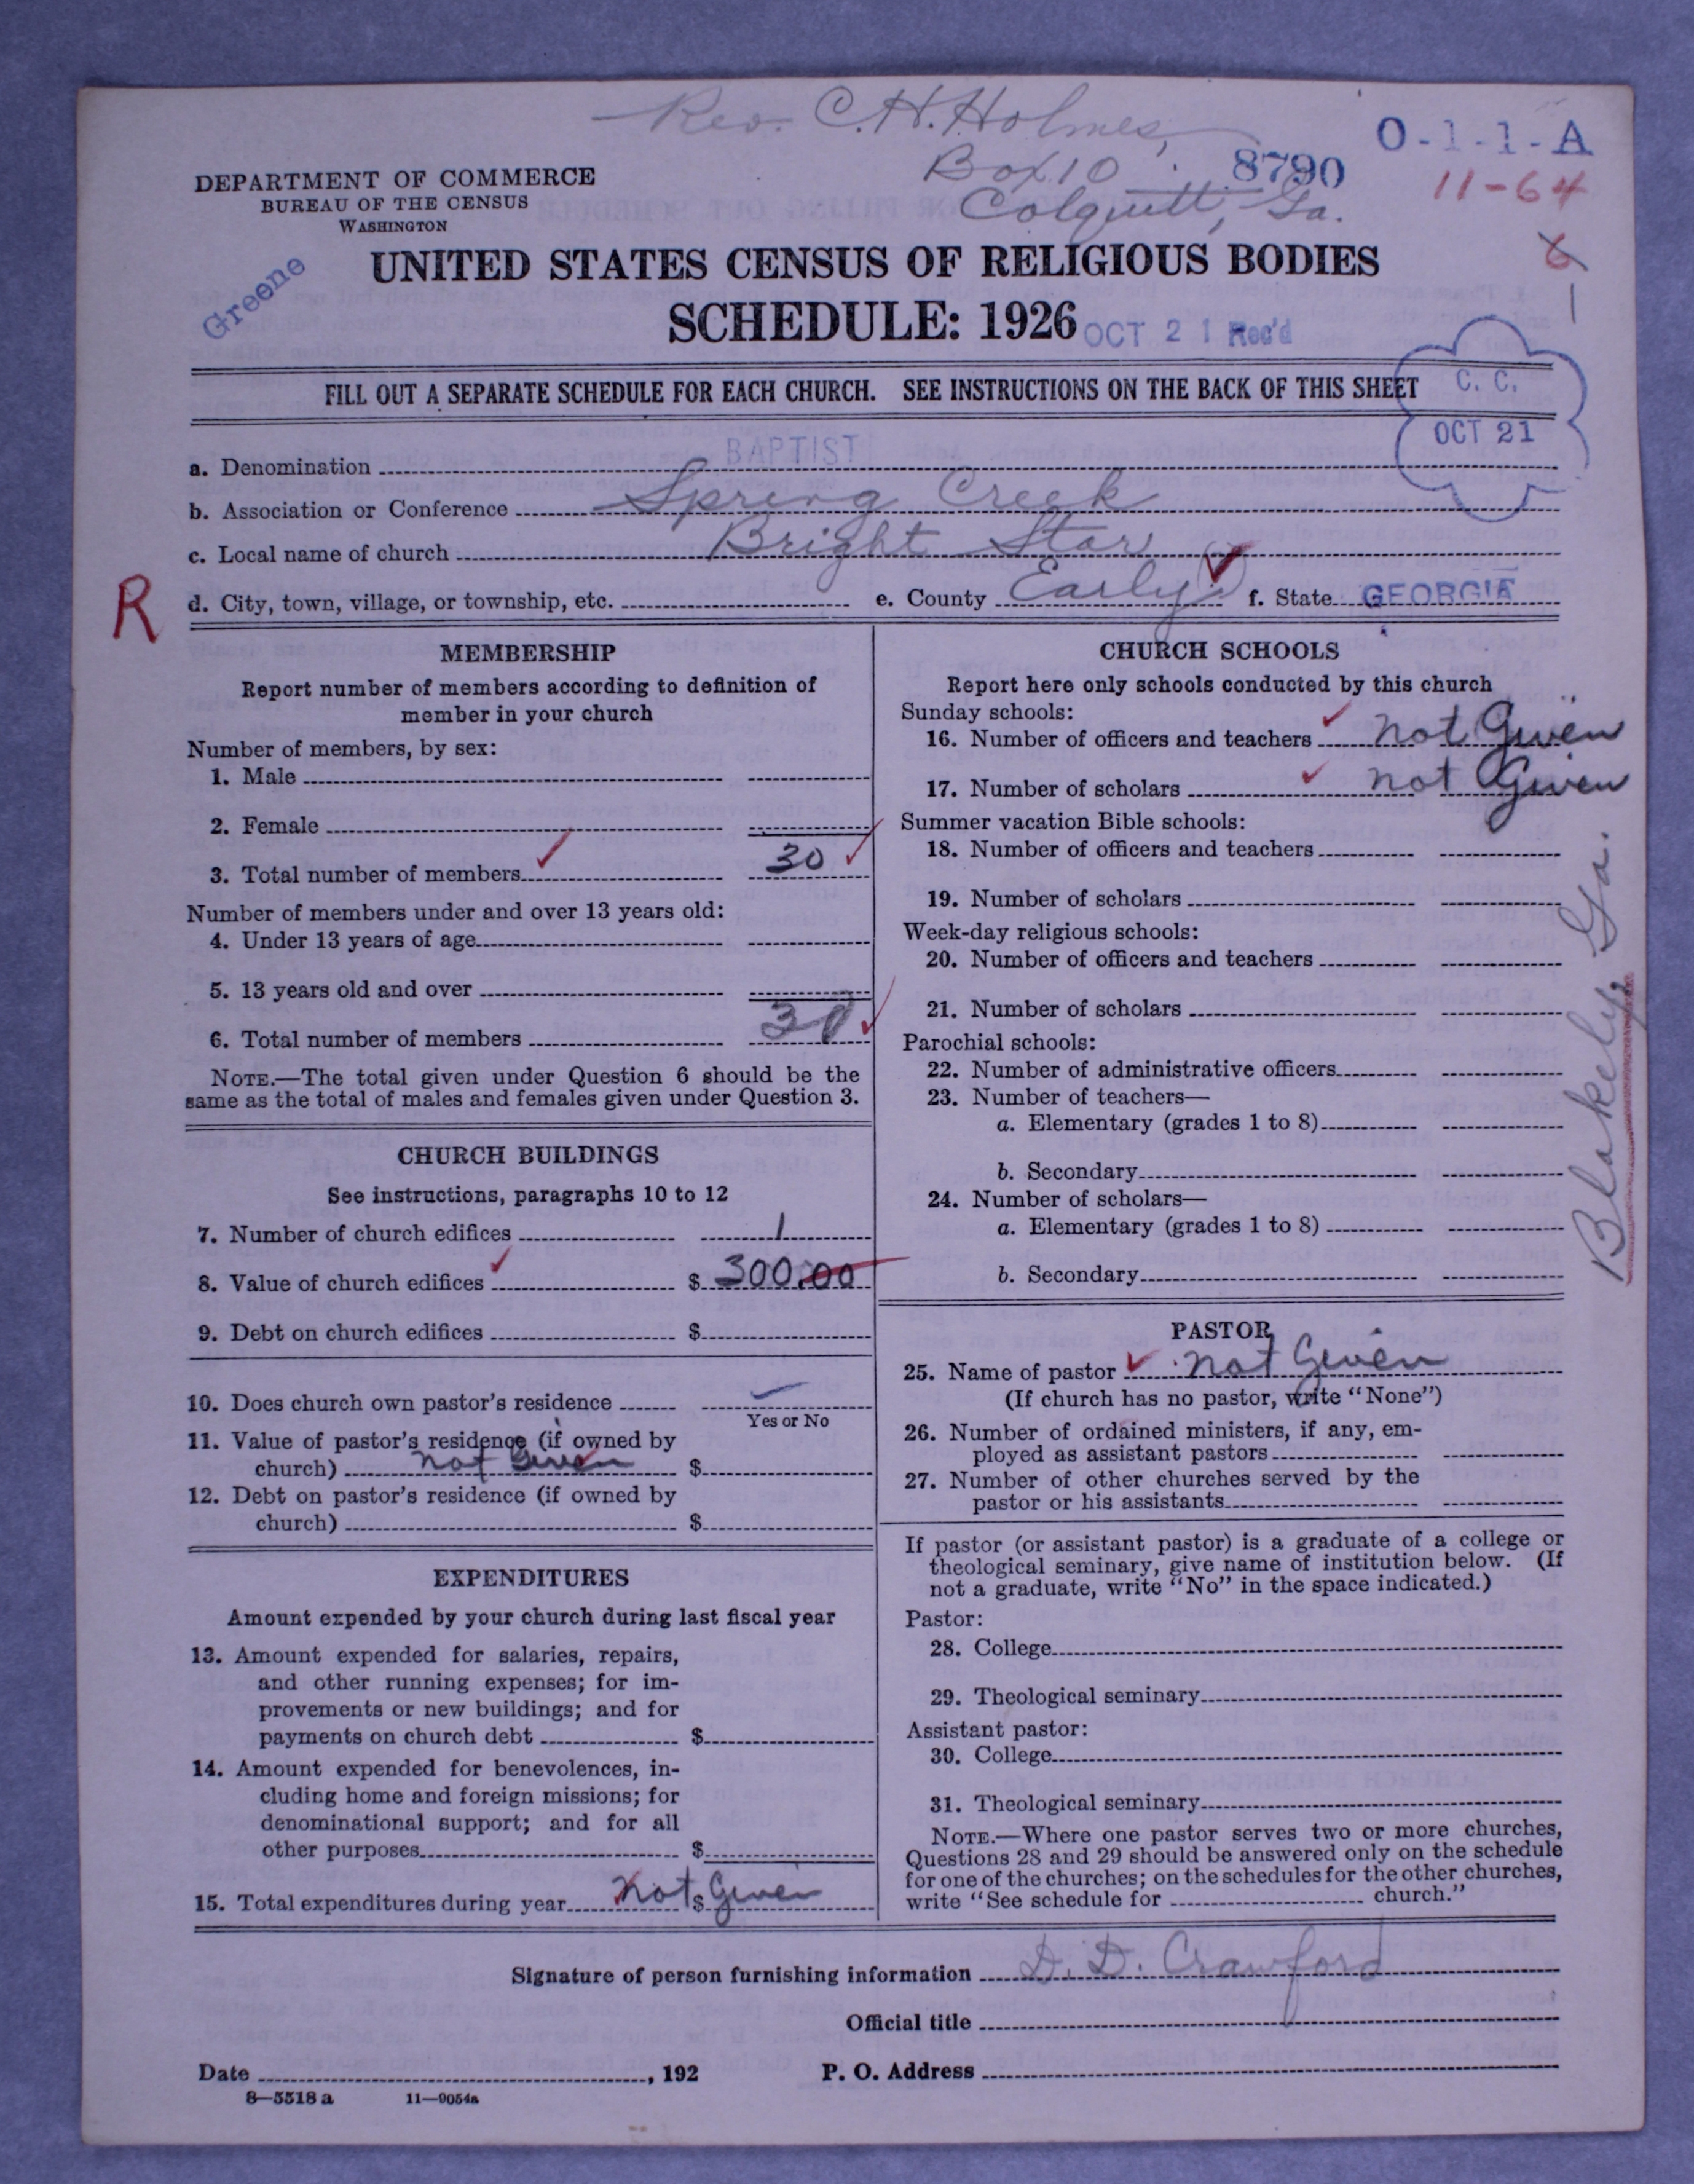 Rev. C. H. Holmes,
Box 10
Colquitt, Ga.
8790
O-1-1-A
11-64
6
1
DEPARTMENT OF COMMERCE
BUREAU OF THE CENSUS
WASHINGTON
Greene
UNITED STATES CENSUS OF RELIGIOUS BODIES
SCHEDULE: 1926
OCT 21 Rec'd
FILL OUT A SEPARATE SCHEDULE FOR EACH CHURCH. SEE INSTRUCTIONS ON THE BACK OF THIS SHEET
C. C.
OCT 21
a. Denomination BAPTIST
b. Association or Conference Spring Creek
c. Local name of church Bright Star
R
d. City, town, village, or township, etc. e. County Early f. State GEORGIA
MEMBERSHIP
Report number of members according to definition of
member in your church
Number of members, by sex:
1. Male
2. Female
3. Total number of members 30
Number of members under and over 13 years old:
4. Under 13 years of age
5. 13 years old and over
6. Total number of members 30
NOTE.—The total given under Question 6 should be the
same as the total of males and females given under Question 3.
CHURCH BUILDINGS
See instructions, paragraphs 10 to 12
7. Number of church edifices 1
8. Value of church edifices $ 300.00
9. Debt on church edifices $
10. Does church own pastor's residence
Yes or No
11. Value of pastor's residence (if owned by
church) not Given $
12. Debt on pastor's residence (if owned by
church) $
EXPENDITURES
Amount expended by your church during last fiscal year
13. Amount expended for salaries, repairs,
and other running expenses; for im-
provements or new buildings; and for
payments on church debt $
14. Amount expended for benevolences, in-
cluding home and foreign missions; for
denominational support; and for all
other purposes $
15. Total expenditures during year not $ Given
CHURCH SCHOOLS
Report here only schools conducted by this church
Sunday schools:
16. Number of officers and teachers not Given
17. Number of scholars not Given
Summer vacation Bible schools:
18. Number of officers and teachers
19. Number of scholars
Week-day religious schools:
20. Number of officers and teachers
21. Number of scholars
Parochial schools:
22. Number of administrative officers
23. Number of teachers—
a. Elementary (grades 1 to 8)
b. Secondary
24. Number of scholars—
a. Elementary (grades 1 to 8)
b. Secondary
Blakely, Ga.
PASTOR
25. Name of pastor not Given
(If church has no pastor, write "None")
26. Number of ordained ministers, if any, em-
ployed as assistant pastors
27. Number of other churches served by the
pastor or his assistants
If pastor (or assistant pastor) is a graduate of a college or
theological seminary, give name of institution below. (If
not a graduate, write "No" in the space indicated.)
Pastor:
28. College
29. Theological seminary
Assistant pastor:
30. College
31. Theological seminary
NOTE.—Where one pastor serves two or more churches,
Questions 28 and 29 should be answered only on the schedule
for one of the churches; on the schedules for the other churches,
write "See schedule for church."
Signature of person furnishing information D. D. Crawford
Official title
Date , 192 P. O. Address
8—5518 a 11—9054a